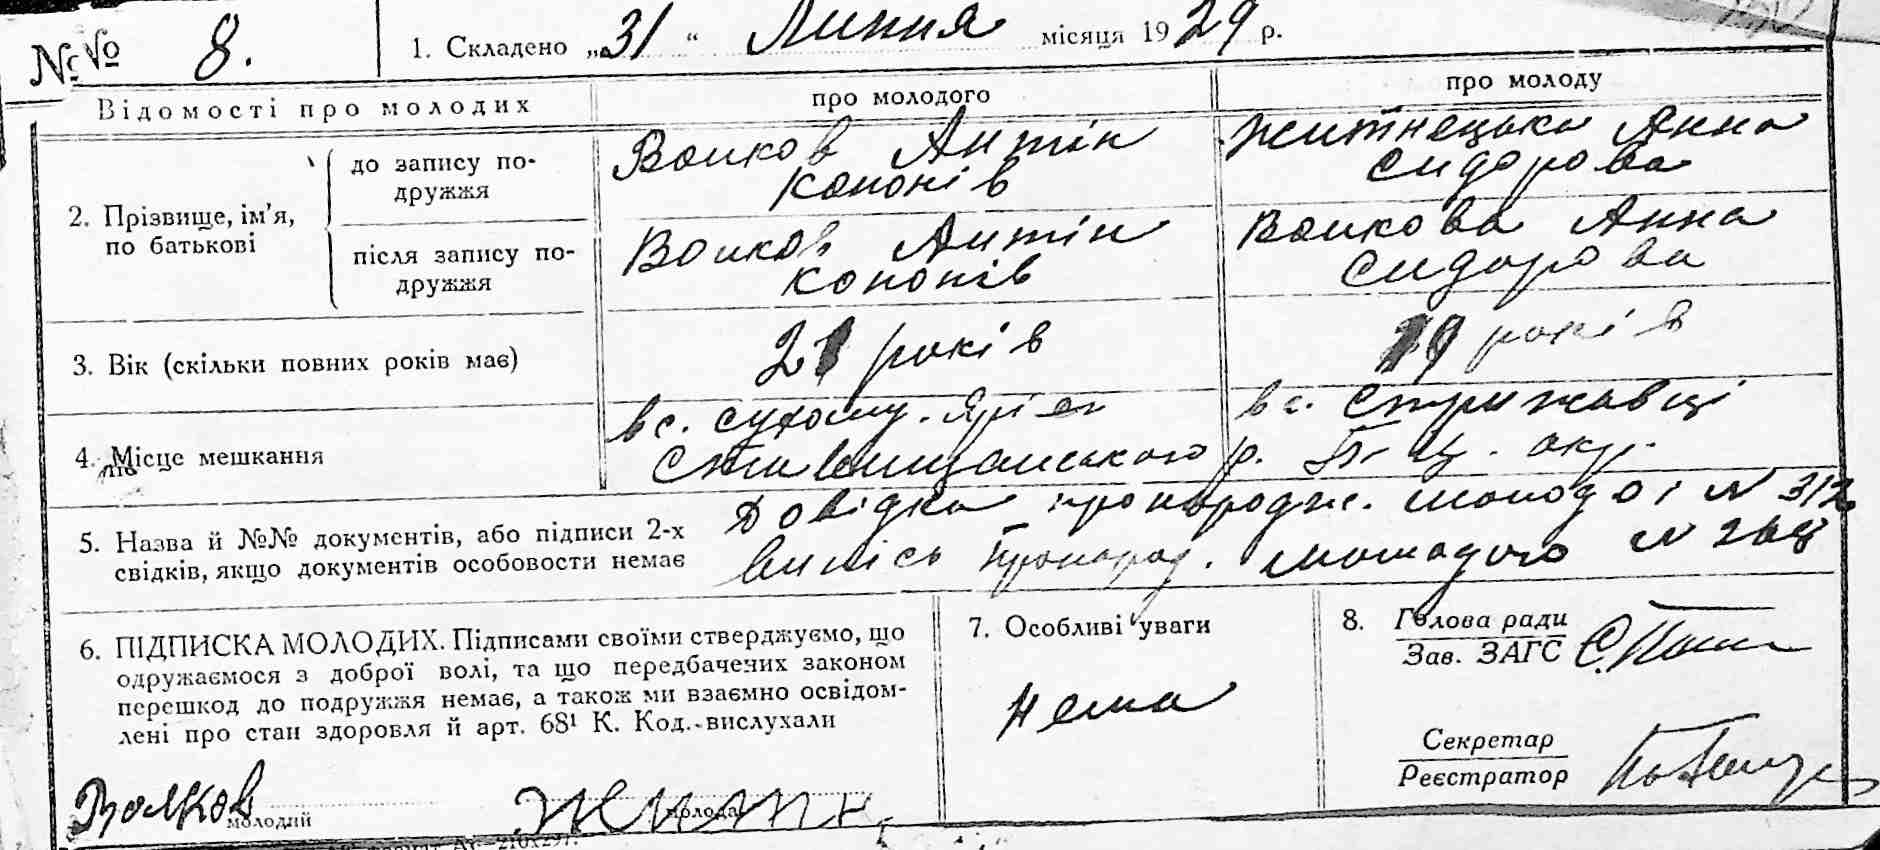 №№ 8. 1. Складено „31“ Липня місяця 1929 р.
Відомості про молодих про молодого про молоду
2. Прізвище, ім'я, по батькові
до запису по-
дружжя
Волков Антін
Кононів
Житнецька Анна
Сидорова
після запису по-
дружжя
Волков Антін
Кононів
Волкова Анна
Сидорова
3. Вік (скільки повних років має) 21 років 19 років
4. Місце мешкання
в с. Сухому. Ярі
Ставищанського р. Б-Ц. окр.
в с. Стрижавці
5. Назва й №№ документів, або підписи 2-х
свідків, якщо документів особовости немає
Довідка про народж. молодої N 312
Випись про народ. молодого N
6. ПІДПИСКА МОЛОДИХ. Підписами своїми стверджуємо, що
одружаємося з доброї волі, та що передбачених законом
перешкод до подружжя немає, а також ми взаємно освідом-
лені про стан здоровля й арт. 68¹ К. Код. вислухали
Волков
молодий
Житн
молода
7. Особливі уваги
нема
8. Голова ради
Зав. ЗАГС
Секретар
Реєстратор